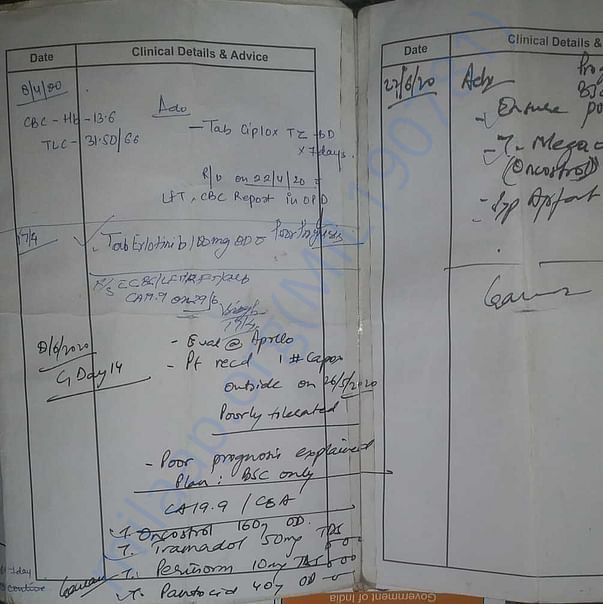 Date Clinical Details & Advice
8/4/20
Adv
CBC - Hb - 13.6
TLC - 31.50/66
- Tab Ciplox TZ - BD
x 7 days.
R/v on 22/4/20 c
LFT, CBC Report in OPD
17/4
Tab Erlotinib 100mg OD c Poor Prognosis
CA19.9
8/6/2020
C1 Day 14
- Eval @ Apollo
- Pt recd 1 # Capox
outside on 26/5/2020
Poorly tolerated
- Poor prognosis explained
Plan: BSC only
CA19.9 / CEA
T. Oncostrol 160mg OD
T. Tramadol 50mg TDS
T. Perinorm 10mg TDS
T. Pantocid 40mg OD
1 day
continue
Date Clinical Details &
27/6/20 Adv
- Ensure
- T. Mega
(Oncostrol)
- Syp
Government of India
milaap.org(MIL190781)